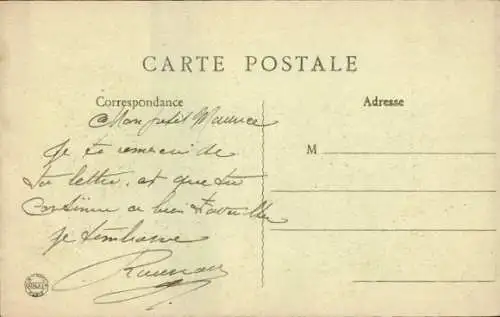 CARTE POSTALE
Correspondance
Adresse
Mon petit Maurice
Je te remercie de
ta lettre. et que tu
continue a bien travailler
je t'embrasse
M